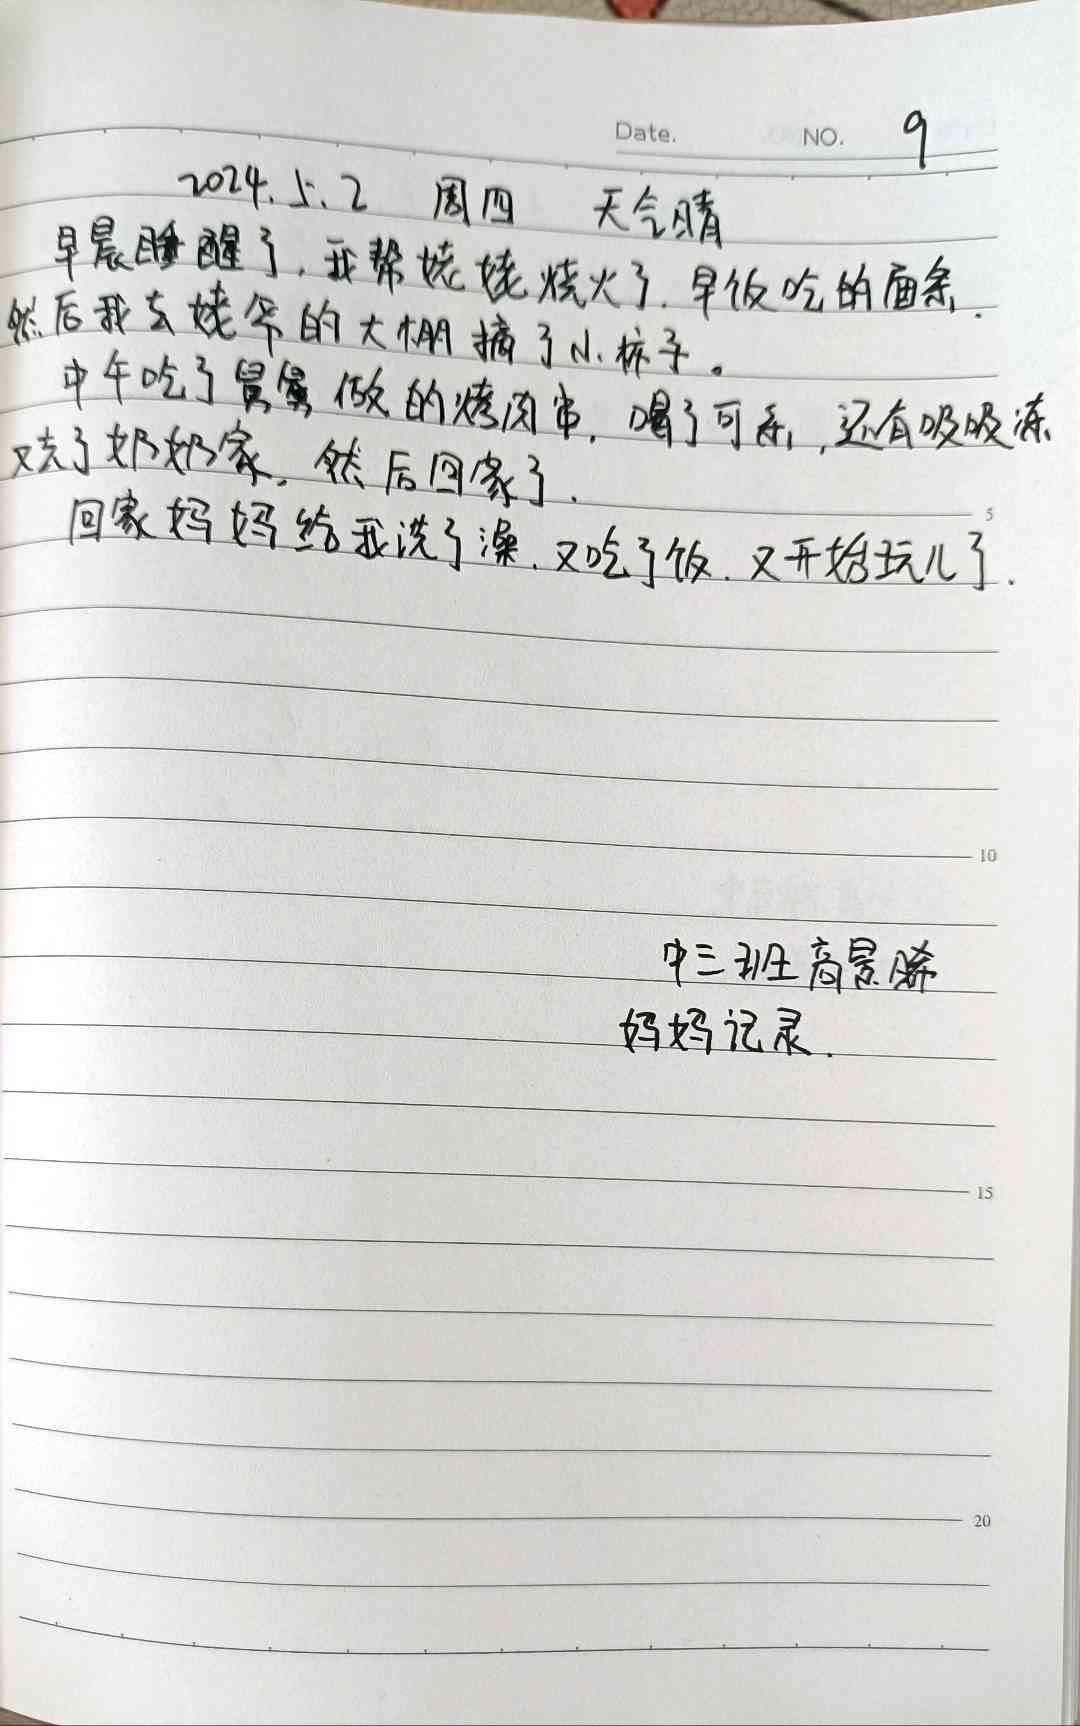 Date. NO. 9
2024.5.2 周四 天气晴
早晨睡醒了，我帮姥姥烧火了.早饭吃的面条.
然后我去姥爷的大棚摘了小柿子。
中午吃了舅舅做的烤肉串，喝了可乐，还有吸吸冻
又去了奶奶家。然后回家了.
5
回家妈妈给我洗了澡.又吃了饭.又开始玩儿了.
10
中三班高景晞
妈妈记录.
15
20